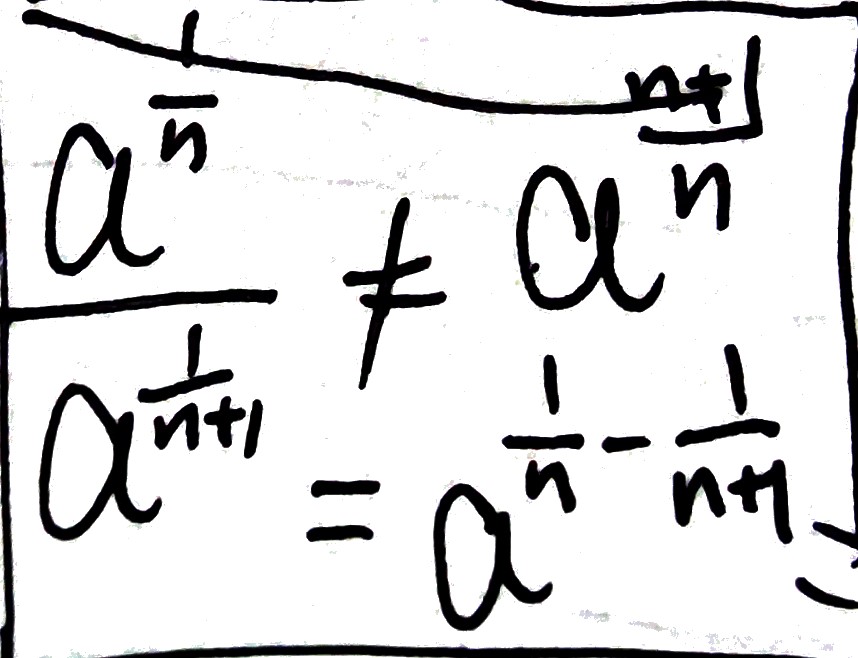 a^{\frac{1}{n}} / a^{\frac{1}{n+1}} ≠ a^{\frac{n+1}{n}}
= a^{\frac{1}{n} - \frac{1}{n+1}} =